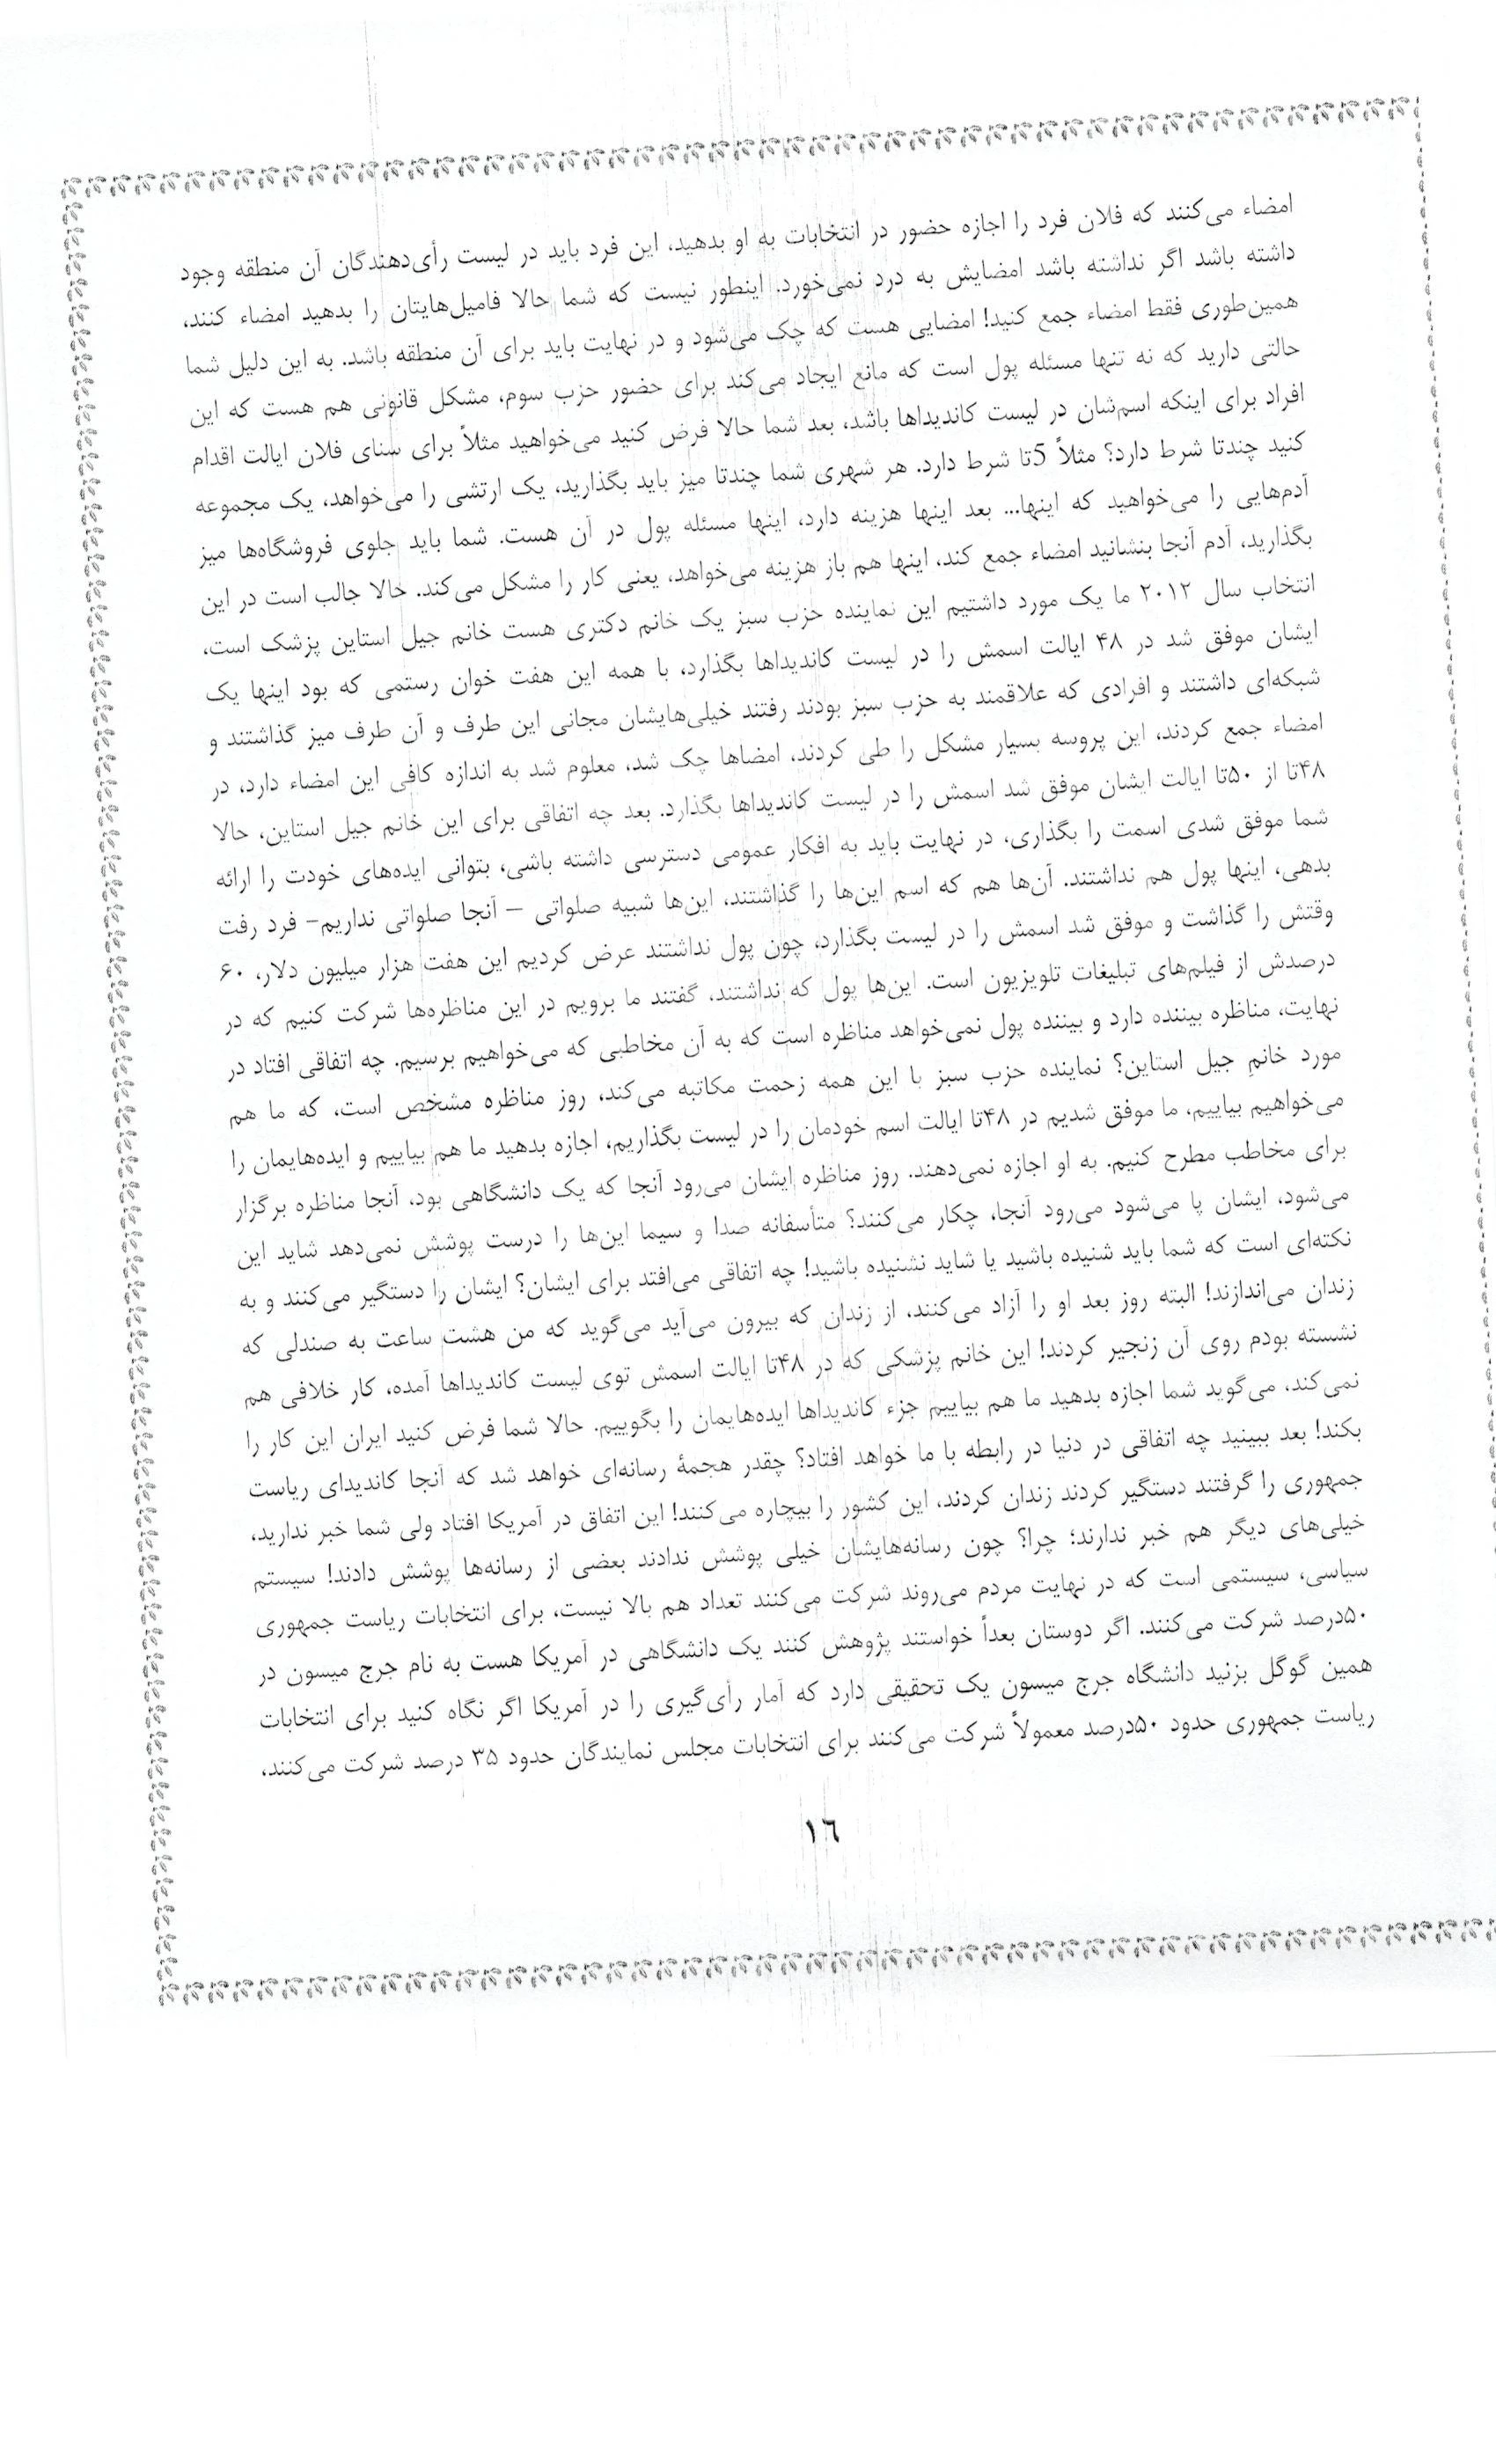 امضاء می‌کنند که فلان فرد را اجازه حضور در انتخابات به او بدهید، این فرد باید در لیست رأی‌دهندگان آن منطقه وجود
داشته باشد اگر نداشته باشد امضایش به درد نمی‌خورد. اینطور نیست که شما حالا فامیل‌هایتان را بدهید امضاء کنند،
همین‌طوری فقط امضاء جمع کنید! امضایی هست که چک می‌شود و در نهایت باید برای آن منطقه باشد. به این دلیل شما
حالتی دارید که نه تنها مسئله پول است که مانع ایجاد می‌کند برای حضور حزب سوم، مشکل قانونی هم هست که این
افراد برای اینکه اسم‌شان در لیست کاندیداها باشد، بعد شما حالا فرض کنید می‌خواهید مثلاً برای سنای فلان ایالت اقدام
کنید چندتا شرط دارد؟ مثلاً 5تا شرط دارد. هر شهری شما چندتا میز باید بگذارید، یک ارتشی را می‌خواهد، یک مجموعه
آدم‌هایی را می‌خواهید که اینها... بعد اینها هزینه دارد، اینها مسئله پول در آن هست. شما باید جلوی فروشگاه‌ها میز
بگذارید، آدم آنجا بنشانید امضاء جمع کند، اینها هم باز هزینه می‌خواهد، یعنی کار را مشکل می‌کند. حالا جالب است در این
انتخاب سال ۲۰۱۲ ما یک مورد داشتیم این نماینده حزب سبز یک خانم دکتری هست خانم جیل استاین پزشک است،
ایشان موفق شد در ۴۸ ایالت اسمش را در لیست کاندیداها بگذارد، با همه این هفت خوان رستمی که بود اینها یک
شبکه‌ای داشتند و افرادی که علاقمند به حزب سبز بودند رفتند خیلی‌هایشان مجانی این طرف و آن طرف میز گذاشتند و
امضاء جمع کردند، این پروسه بسیار مشکل را طی کردند، امضاها چک شد، معلوم شد به اندازه کافی این امضاء دارد، در
۴۸تا از ۵۰تا ایالت ایشان موفق شد اسمش را در لیست کاندیداها بگذارد. بعد چه اتفاقی برای این خانم جیل استاین، حالا
شما موفق شدی اسمت را بگذاری، در نهایت باید به افکار عمومی دسترسی داشته باشی، بتوانی ایده‌های خودت را ارائه
بدهی، اینها پول هم نداشتند. آن‌ها هم که اسم این‌ها را گذاشتند، این‌ها شبیه صلواتی – آنجا صلواتی نداریم- فرد رفت
وقتش را گذاشت و موفق شد اسمش را در لیست بگذارد، چون پول نداشتند عرض کردیم این هفت هزار میلیون دلار، ۶۰
درصدش از فیلم‌های تبلیغات تلویزیون است. این‌ها پول که نداشتند، گفتند ما برویم در این مناظره‌ها شرکت کنیم که در
نهایت، مناظره بیننده دارد و بیننده پول نمی‌خواهد مناظره است که به آن مخاطبی که می‌خواهیم برسیم. چه اتفاقی افتاد در
مورد خانمِ جیل استاین؟ نماینده حزب سبز با این همه زحمت مکاتبه می‌کند، روز مناظره مشخص است، که ما هم
می‌خواهیم بیاییم، ما موفق شدیم در ۴۸تا ایالت اسم خودمان را در لیست بگذاریم، اجازه بدهید ما هم بیاییم و ایده‌هایمان را
برای مخاطب مطرح کنیم. به او اجازه نمی‌دهند. روز مناظره ایشان می‌رود آنجا که یک دانشگاهی بود، آنجا مناظره برگزار
می‌شود، ایشان پا می‌شود می‌رود آنجا، چکار می‌کنند؟ متأسفانه صدا و سیما این‌ها را درست پوشش نمی‌دهد شاید این
نکته‌ای است که شما باید شنیده باشید یا شاید نشنیده باشید! چه اتفاقی می‌افتد برای ایشان؟ ایشان را دستگیر می‌کنند و به
زندان می‌اندازند! البته روز بعد او را آزاد می‌کنند، از زندان که بیرون می‌آید می‌گوید که من هشت ساعت به صندلی که
نشسته بودم روی آن زنجیر کردند! این خانم پزشکی که در ۴۸تا ایالت اسمش توی لیست کاندیداها آمده، کار خلافی هم
نمی‌کند، می‌گوید شما اجازه بدهید ما هم بیاییم جزء کاندیداها ایده‌هایمان را بگوییم. حالا شما فرض کنید ایران این کار را
بکند! بعد ببینید چه اتفاقی در دنیا در رابطه با ما خواهد افتاد؟ چقدر هجمۀ رسانه‌ای خواهد شد که آنجا کاندیدای ریاست
جمهوری را گرفتند دستگیر کردند زندان کردند، این کشور را بیچاره می‌کنند! این اتفاق در آمریکا افتاد ولی شما خبر ندارید،
خیلی‌های دیگر هم خبر ندارند؛ چرا؟ چون رسانه‌هایشان خیلی پوشش ندادند بعضی از رسانه‌ها پوشش دادند! سیستم
سیاسی، سیستمی است که در نهایت مردم می‌روند شرکت می‌کنند تعداد هم بالا نیست، برای انتخابات ریاست جمهوری
۵۰درصد شرکت می‌کنند. اگر دوستان بعداً خواستند پژوهش کنند یک دانشگاهی در آمریکا هست به نام جرج میسون در
همین گوگل بزنید دانشگاه جرج میسون یک تحقیقی دارد که آمار رأی‌گیری را در آمریکا اگر نگاه کنید برای انتخابات
ریاست جمهوری حدود ۵۰درصد معمولاً شرکت می‌کنند برای انتخابات مجلس نمایندگان حدود ۳۵ درصد شرکت می‌کنند،
١٦